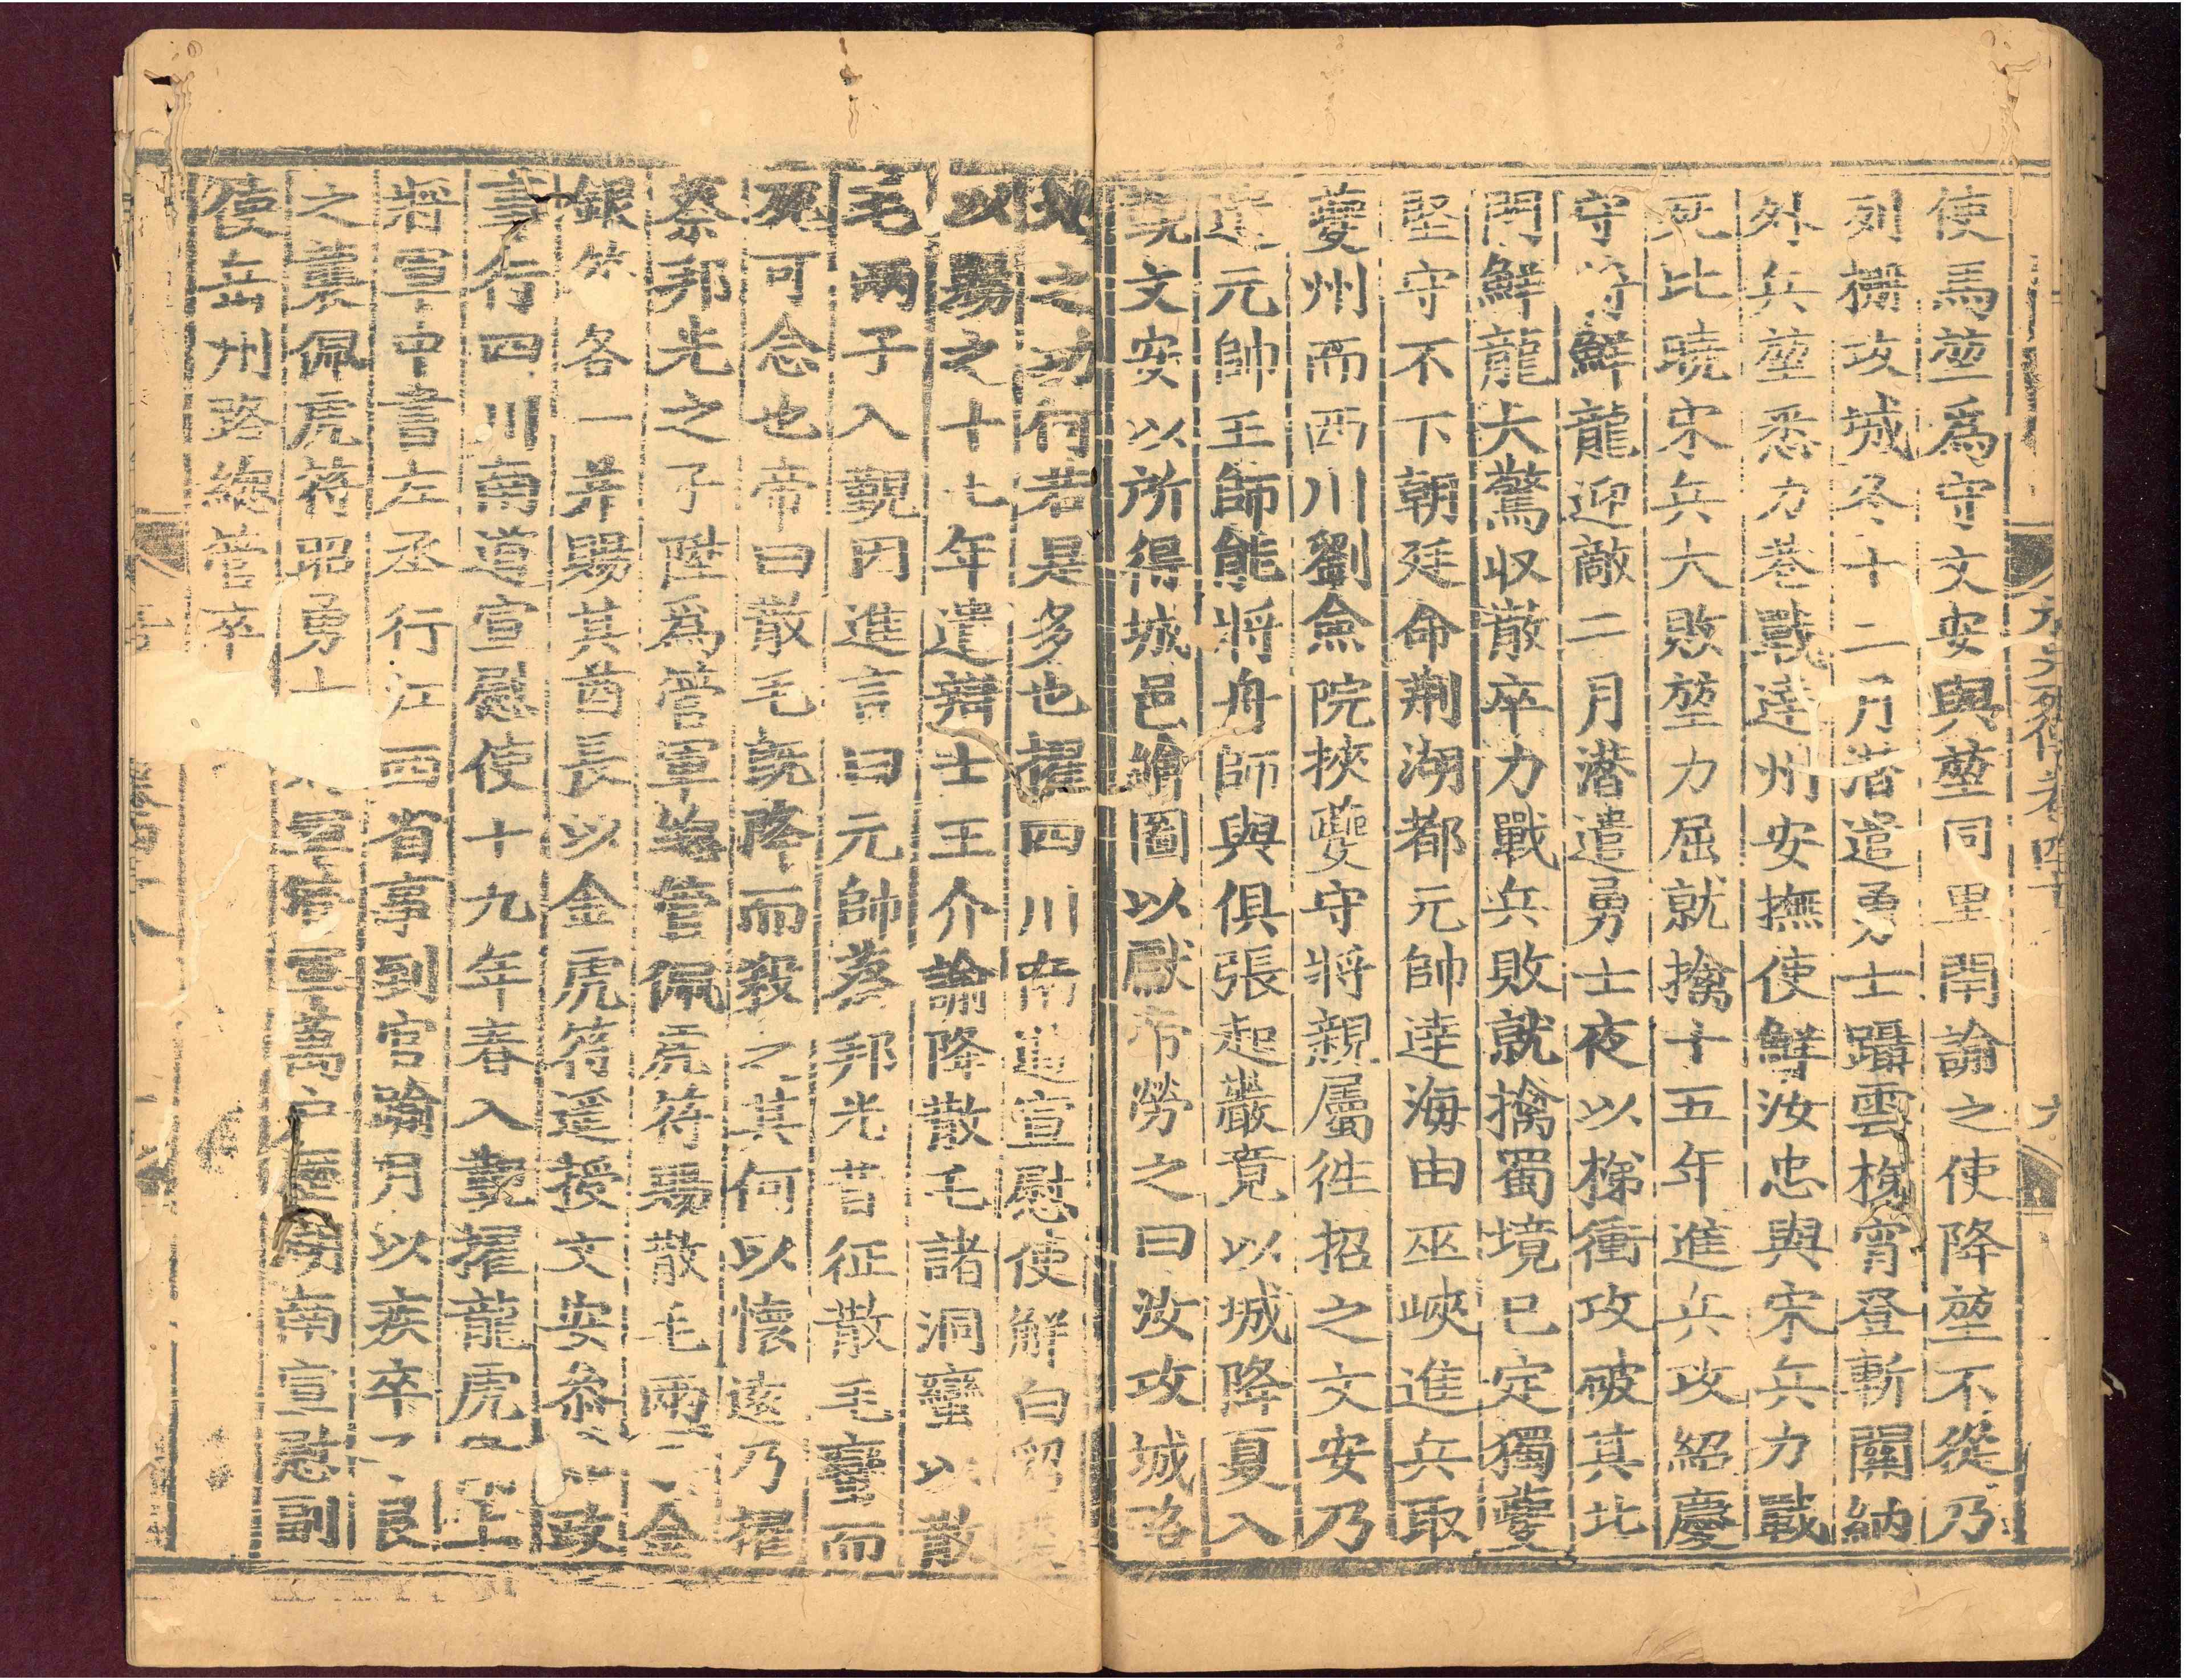 使馬堃爲守文安與堃同里閈諭之使降堃不從乃
列柵攻城冬十二月潜遣勇士躡雲梯宵登斬關納
外兵堃悉力巷戰達州安撫使鮮汝忠與宋兵力戰
死比曉宋兵大敗堃力屈就擒十五年進兵攻紹慶
守將鮮龍迎敵二月潜遣勇士夜以梯衝攻破其北
門鮮龍大驚収散卒力戰兵敗就擒蜀境已定獨夔
堅守不下朝廷命荆湖都元帥達海由巫峽進兵取
夔州而西川劉僉院挾夔守將親屬徃招之文安乃
遣元帥王師能將舟師與俱張起巖竟以城降夏入
覲文安以所得城邑繪圖以獻帝勞之曰汝攻城畧
之功何若是多也擢四川南道宣慰使解白貂裘
以賜之十七年遣辯士王介諭降散毛諸洞蠻以散
毛兩子入覲因進言曰元帥蔡邦光昔征散毛蠻而
死可念也帝曰散毛既降而殺之其何以懷遠乃擢
蔡邦光之子陞爲管軍緫管佩虎符賜散毛兩子金
銀符各一并賜其酋長以金虎符遥授文安叅知政
事行四川南道宣慰使十九年春入覲擢龍虎衛上
將軍中書左丞行江西省事到官踰月以疾卒子良
之襲佩虎符昭勇 將軍管軍萬户歴湖南宣慰副
使岳州路緫管卒
元史列傳卷四十 六